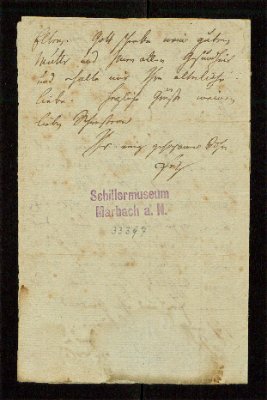 Eltern. Gott schenke meiner guten
Mutter und Ihnen allen Gesundheit
und erhalte mir Ihre elterliche
Liebe. Herzliche Grüße meinen
lieben Schwestern
Ihr ewig gehorsamer Sohn
Schillermuseum
Marbach a. N.
33397